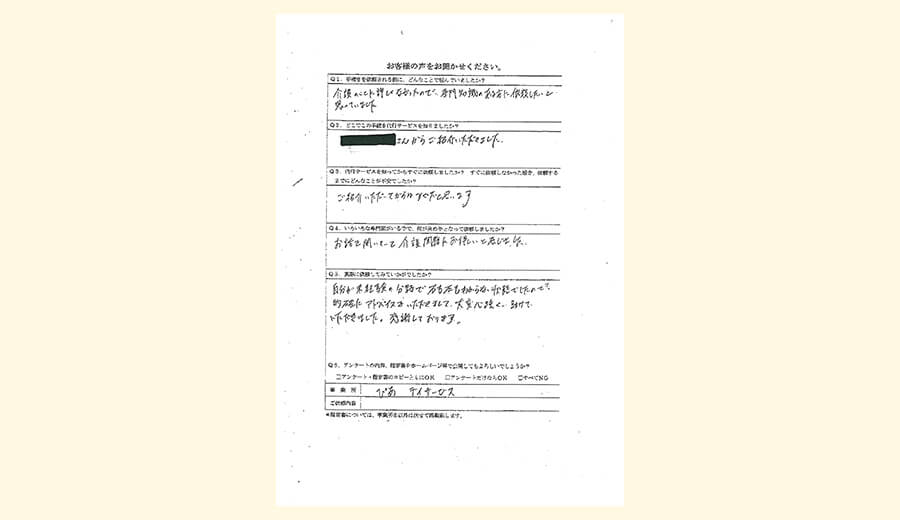 お客様の声をお聞かせください。
Q1、手続きを依頼される前に、どんなことで悩んでいましたか?
介護のことに詳しくなかったので、専門知識のある方に依頼したいと
思っていました
Q2、どこでこの手続き代行サービスを知りましたか?
さんからご紹介いただきました。
Q3、代行サービスを知ってからすぐに依頼しましたか? すぐに依頼しなかった場合、依頼する
までにどんなことが不安でしたか?
ご紹介いただいてからすぐだと思います
Q4、いろいろな専門家がいる中で、何が決め手となって依頼しましたか?
お話を聞いて 介護関係にお詳しいと感じました。
Q5、実際に依頼してみていかがでしたか?
自分が未経験の分野で右も左もわからない状態でしたので、
的確にアドバイスをいただきまして、大変心強く、助けて
いただきました。感謝しております。
Q5、アンケートの内容、指定書をホームページ等で公開してもよろしいでしょうか?
□アンケート・指定書のコピーともにOK □アンケートだけならOK □すべてNG
事業所 ぴあ デイサービス
ご依頼内容
※指定書については、事業所名以外は伏せて掲載致します。